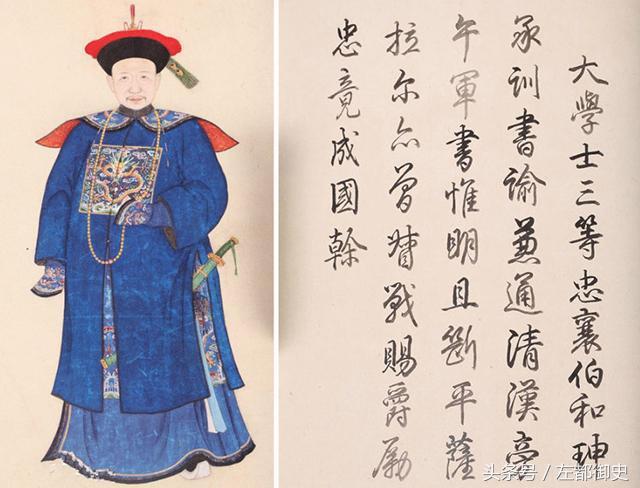 大學士三等忠襄伯和珅
承訓書諭兼通清漢旁
午軍書惟明且斷平薩
拉尔亦曾督戰賜爵勵
忠竟成國榦
头条号 / 左都御史